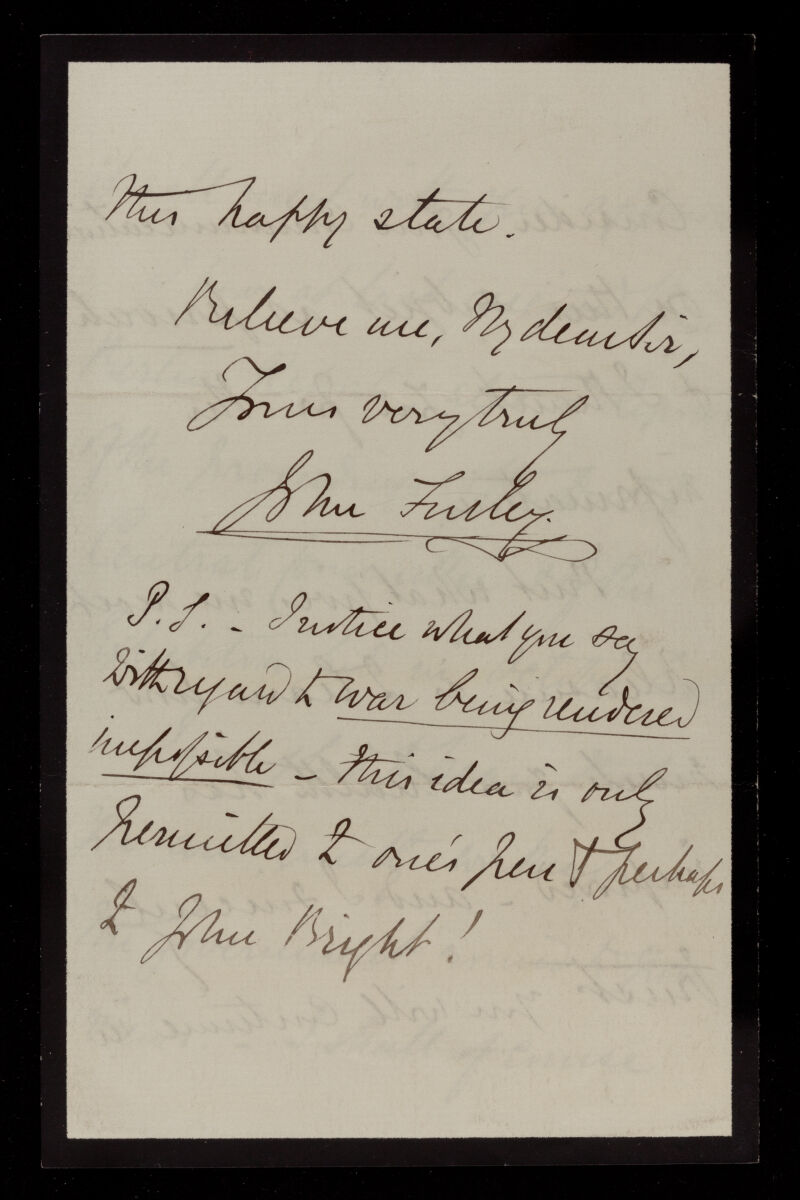 this happy state.
Believe me, My dear Sir,
Yours very truly
John Furley.
P.S. - I notice what you say
with regard to war being rendered
impossible - this idea is only
permitted to one's pen & perhaps
to John Bright!